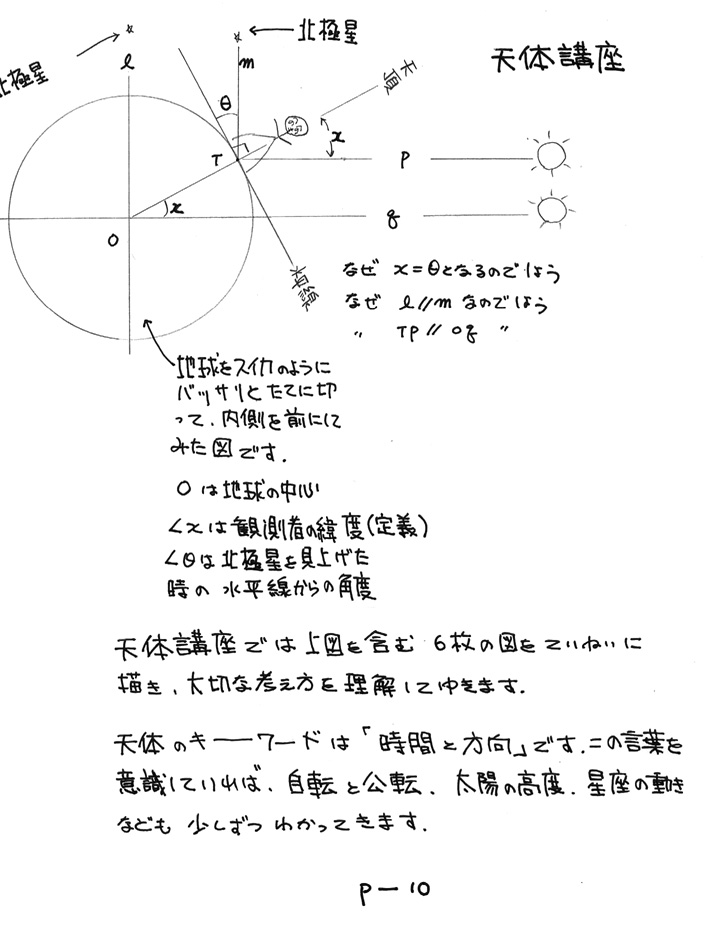 北極星
天体講座
北極星
l
m
天頂
θ
x
T
P
x
q
O
水平線
なぜ x=θとなるのでしょう
なぜ l//m なのでしょう
〃 TP//Oq 〃
地球をスイカのように
バッサリとたてに切
って、内側を前にして
みた図です.
Oは地球の中心
∠xは観測者の緯度(定義)
∠θは北極星を見上げた
時の水平線からの角度
天体講座では上図を含む 6枚の図をていねいに
描き、大切な考え方を理解してゆきます.
天体のキーワードは「時間と方向」です.この言葉を
意識していれば、自転と公転、太陽の高度、星座の動き
なども 少しずつ わかってきます.
P-10